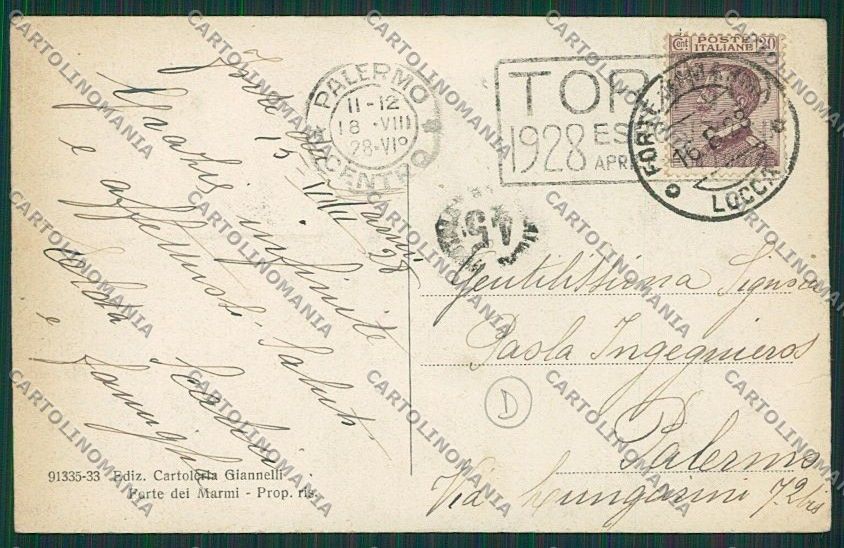 Forte dei Marmi
15-VIII-28
Grazie infinite
e affettuosi saluti
e famiglia
91335-33 Ediz. Cartoleria Giannelli
Forte dei Marmi - Prop. ris.
PALERMO
11-12
18·VIII
28·VIº
CENTRO
1928
APRI
Cent POSTE ITALIANE 20
FORTE
16.8.28
LUCCA
45
Gentilissima Signora
Paola Ingegnieros
D
Palermo
Via Lungarini 72 bis
CARTOLINOMANIA